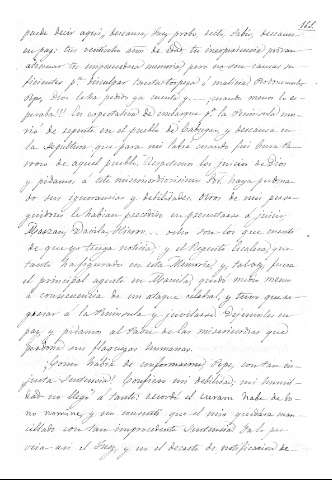 161.
puede decir aquí, descansa, muy probo, recto Pablo, descansa
en paz; tus veintiocho años de edad, tu inexperiencia podran
atenuar tu improcedencia memoria pero no son causas su-
ficientes pª disculpar tanta torpeza ó malicia.
Pepe, Dios le ha pedido ya cuenta y ...... cuando menos lo es-
peraba!!! En espectativa de embarque pª la Península mu-
rió de repente en el pueblo de y descansa en
la sepultura que para mi labré cuando fui Cura Pá-
rroco de aquel pueblo. Respetemos los juicios de Dios
y pidamos á este misericordiosísimo Sr. haya perdona-
do sus ignorancias y debilidades. Otros de mis perse-
guidores le habian precedido en presentarse á juicio;
Bazan, Dávila, ... ocho son los que cuento
de que yo tenga noticia; y el Regente Escalera, que
tanto ha figurado en esta Memoria y, tal vez, fuera
el principal agente en Manila, quedó medio memo
á consecuencia de un ataque cerebral, y tuvo que re-
gresar á la Península y jubilarse. Dejémosles en
paz, y pidamos al Padre de las misericordias que
perdone sus flaquezas humanas.
¿Como había de conformarme, Pepe, con tan in-
justa Sentencia? Confieso mi debilidad; mi humil-
dad no llegó á tanto: recordé el curam habe de bo-
no nomine, y no consentí que el mio quedara man-
cillado con tan improcedente Sentencia. Ya lo pre-
veia así el Juez, y en el decreto de notificacion de-